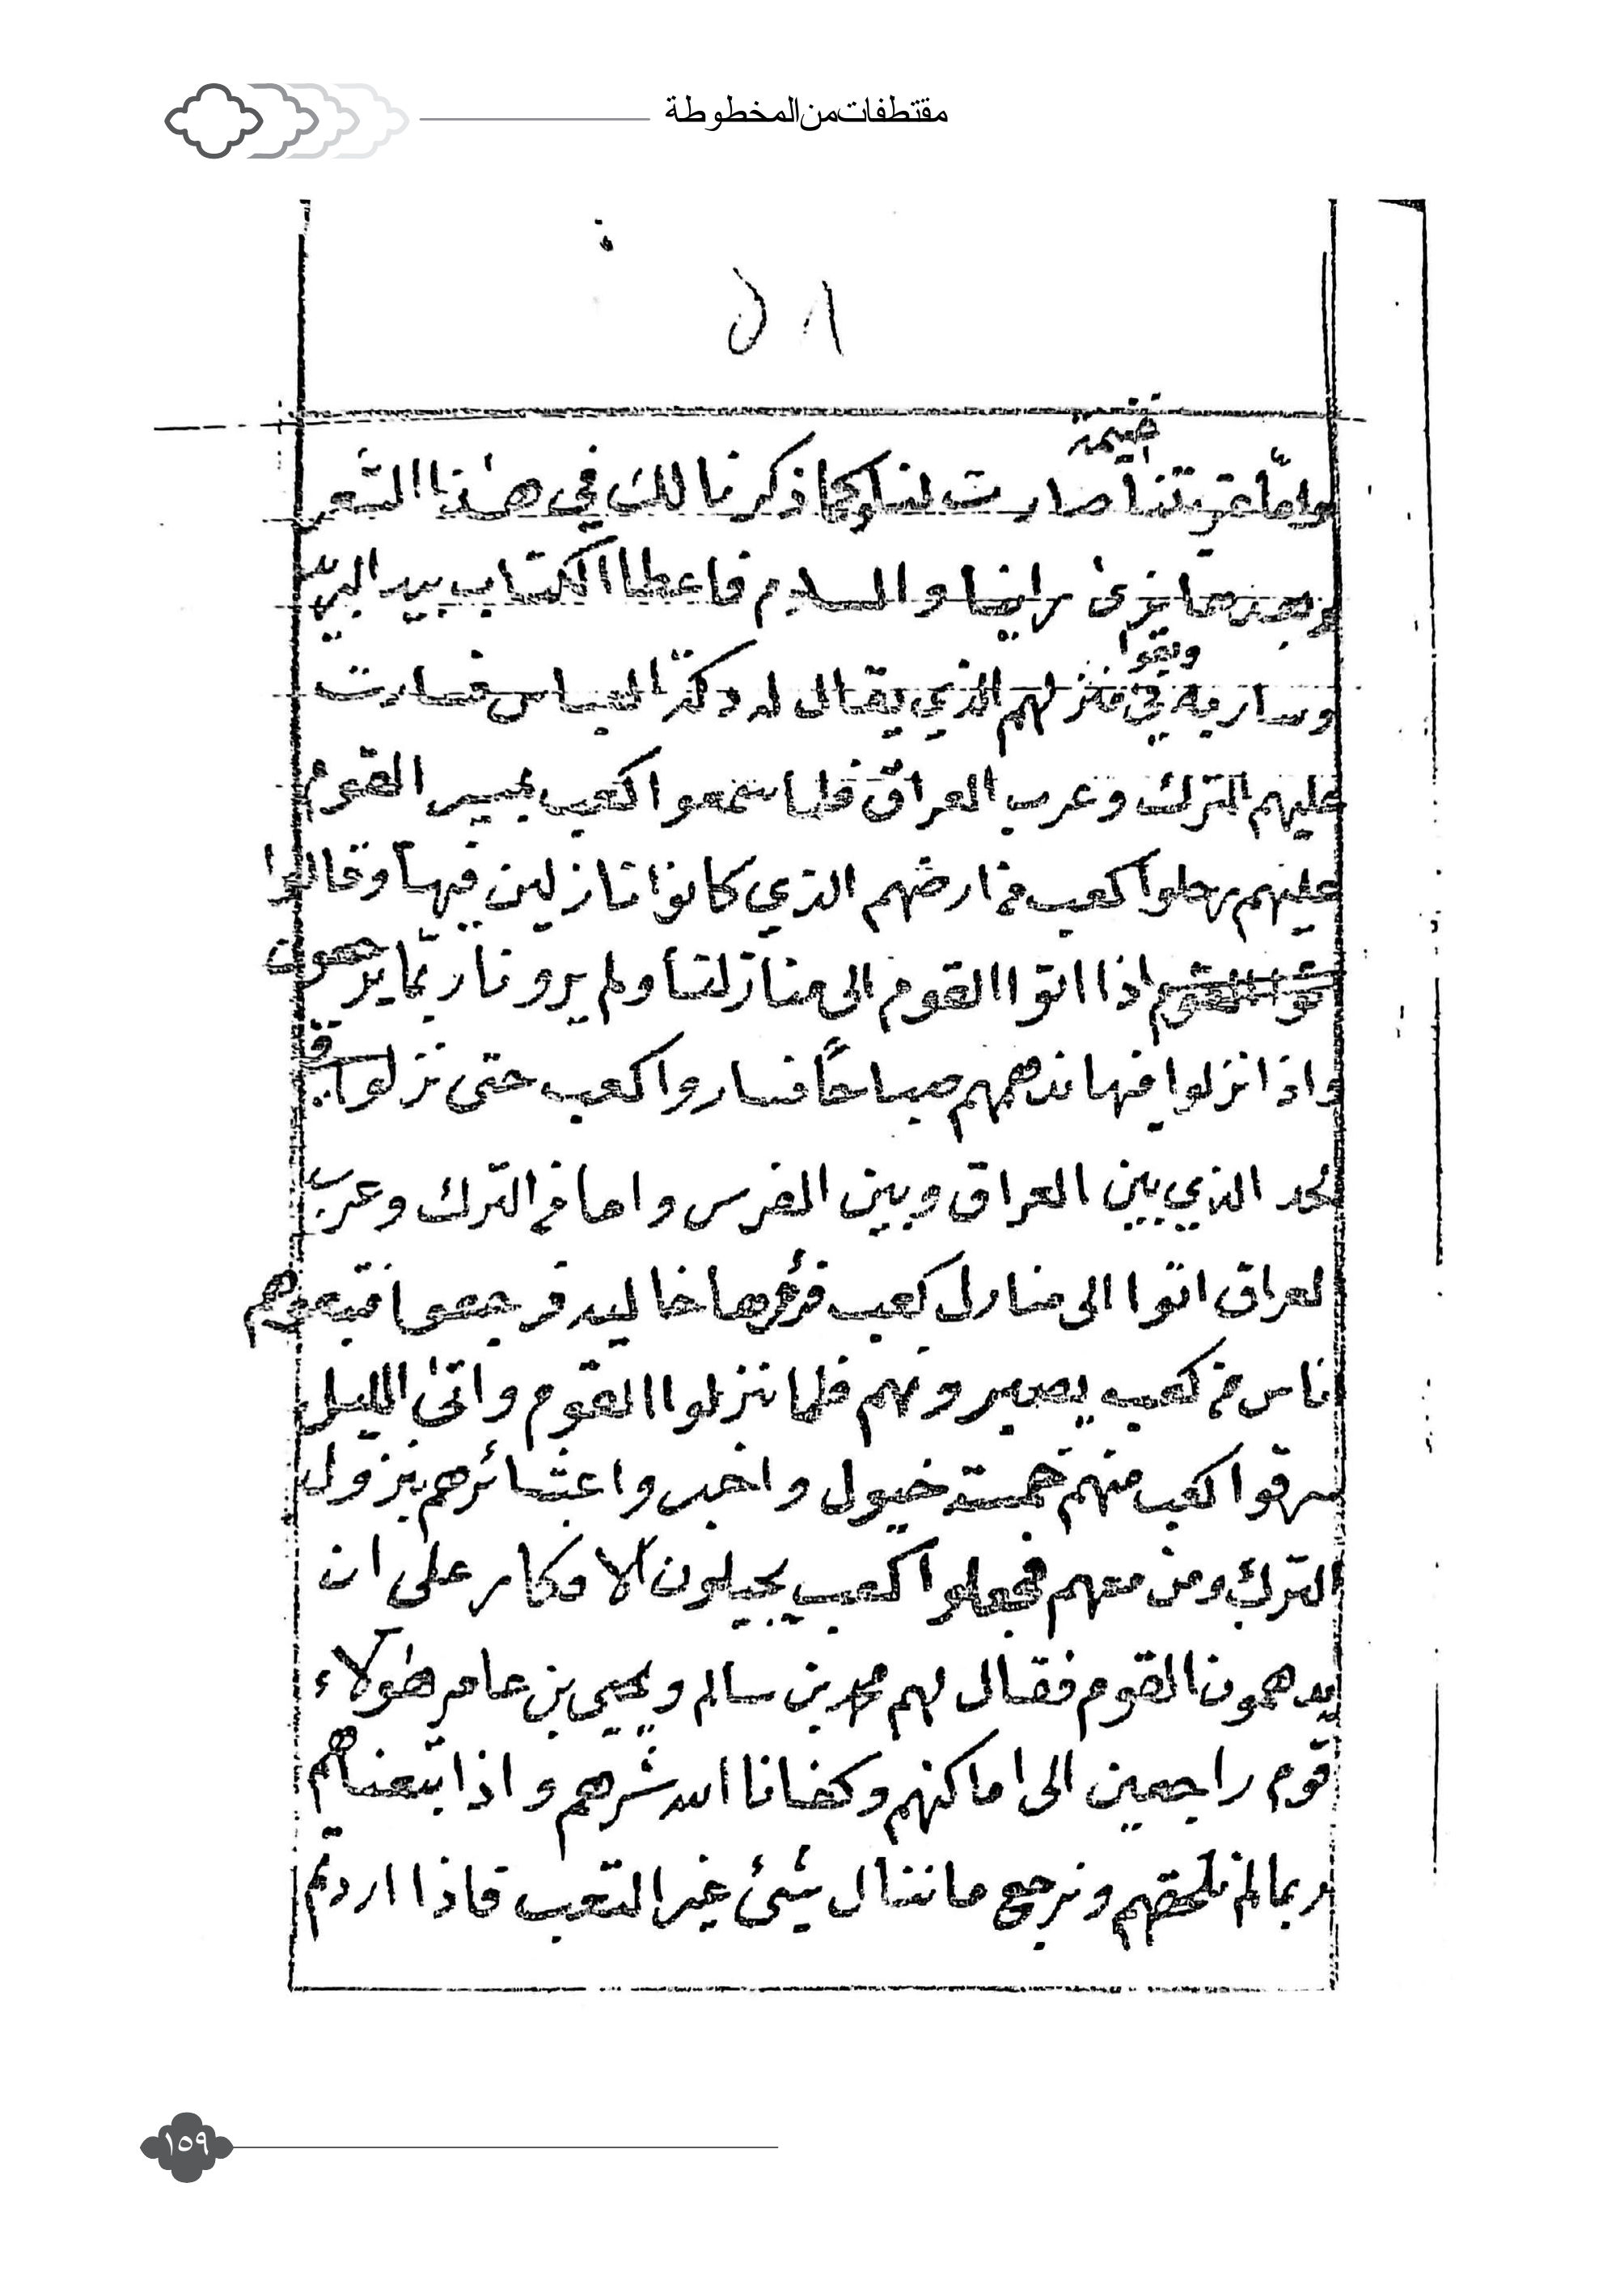 مقتطفات من المخطوطة
٥٨
غنيمة
واما قريتنا صارت لنا كما ذكرنا لك في هذا الشعر
ما نرى رايضا والسلام فاعطا الكتاب بيد
وبقوا
وسار به في منزلهم الذي يقال له دكة العباس فسارت
عليهم الترك وعرب العراق فلما سمعوا كعب بمسير القوم
عليهم رحلوا كعب من ارضهم الذي كانوا نازلين فيها وقالوا
اذا اتوا القوم الى منازلنا ولم يرونا ربّما يرجعون
واذا نزلوا فيها ندهمهم صباحاً فساروا كعب حتى نزلوا في
لحد الذي بين العراق وبين الفرس واما من الترك وعرب
لعراق اتوا الى منازل كعب فرؤها خاليه فرجعوا فتبعوهم
ناس من كعب يصيرونهم فلما نزلوا القوم واتى الليل
سرقوا كعب منهم خمسة خيول واخبروا عشائرهم بنزول
الترك ومن معهم فجعلوا كعب يجيلون الافكار على ان
يدهمون القوم فقال لهم محمد بن سالم ويحيى بن عامر هؤلاء
قوم راجعين الى اماكنهم وكفانا الله شرهم واذا تبعناهم
ربما لم نلحقهم ونرجع ما ننال شيئ غير التعب فاذا اردتم
١٥٩